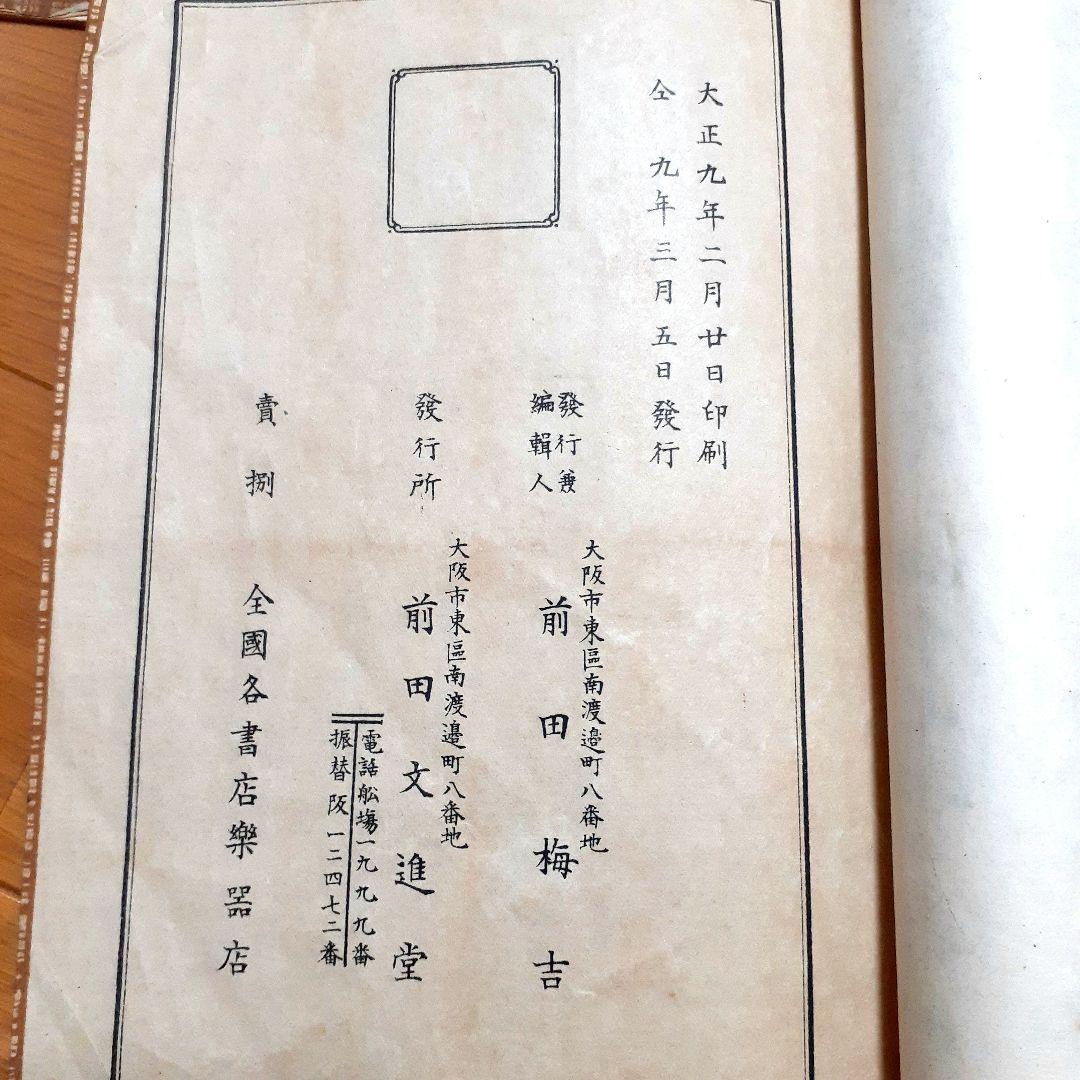 大正九年二月廿日印刷
仝 九年三月五日發行
發行兼
編輯人
大阪市東區南渡邉町八番地
前田梅吉
發行所
大阪市東區南渡邉町八番地
前田文進堂
電話舩塲一九九九番
振替阪一二四七二番
賣捌
全國各書店樂器店